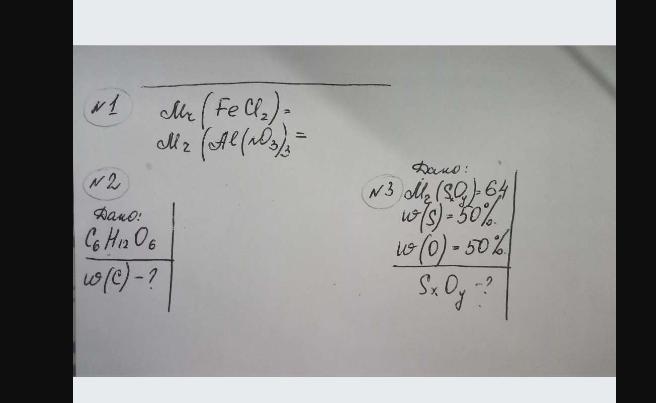 №1
Mr (FeCl2)=
Mr (Al(NO3)3=
№2
Дано:
C6H12O6
w(C)-?
№3
Дано:
Mr(SxOy)=64
w(S)=50%
w(O)=50%.
SxOy-?